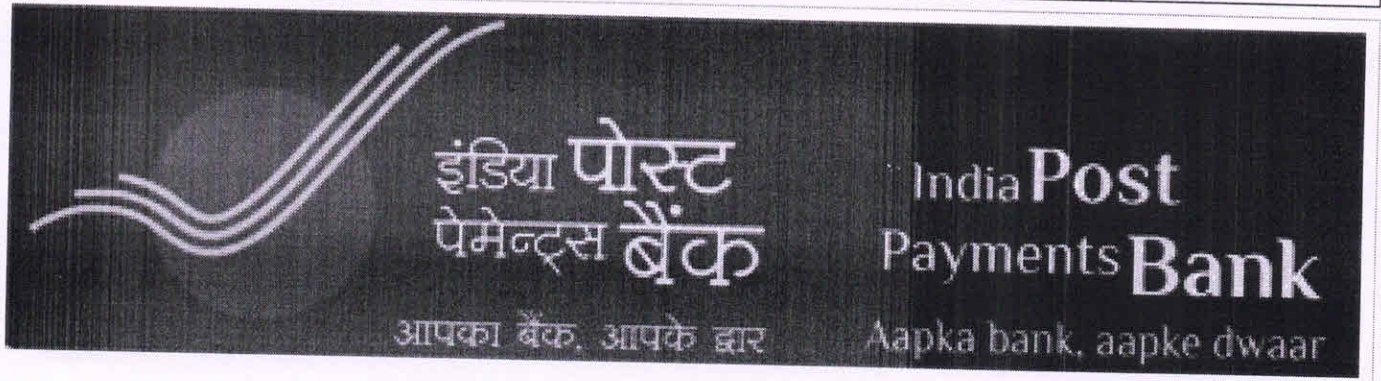 इंडिया पोस्ट
पेमेन्ट्स बैंक
आपका बैंक, आपके द्वार
India Post
Payments Bank
Aapka bank, aapke dwaar